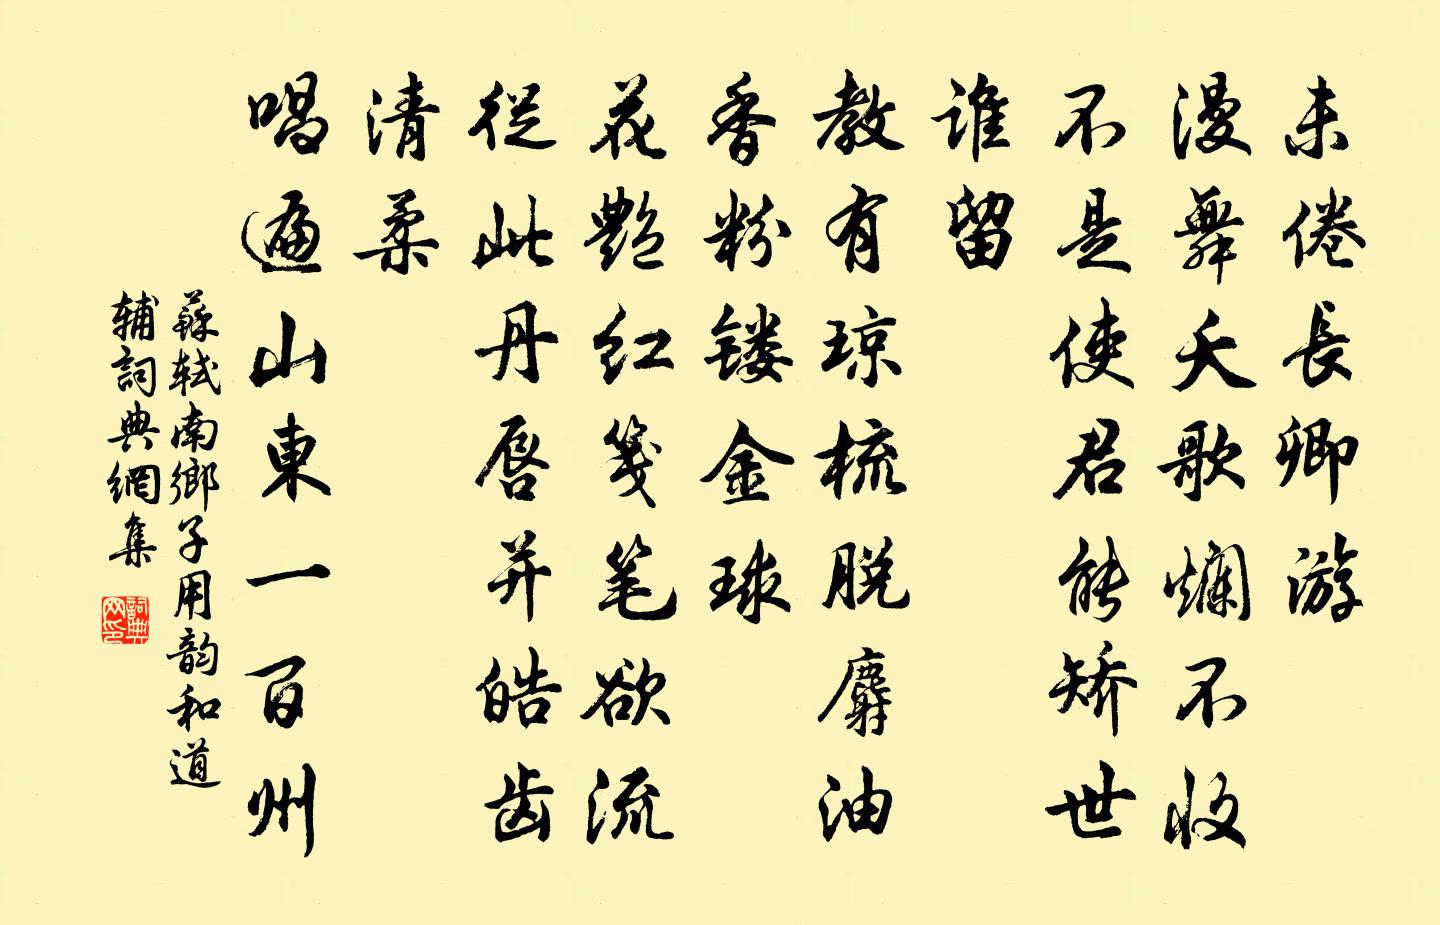 未倦長卿游
漫舞夭歌爛不收
不是使君能矯世
誰留
教有琼梳脱麝油
香粉镂金球
花艷红笺笔欲流
從此丹唇并皓齿
清柔
唱遍山東一百州
蘇軾南鄉子用韵和道
辅詞典網集
詞典网印